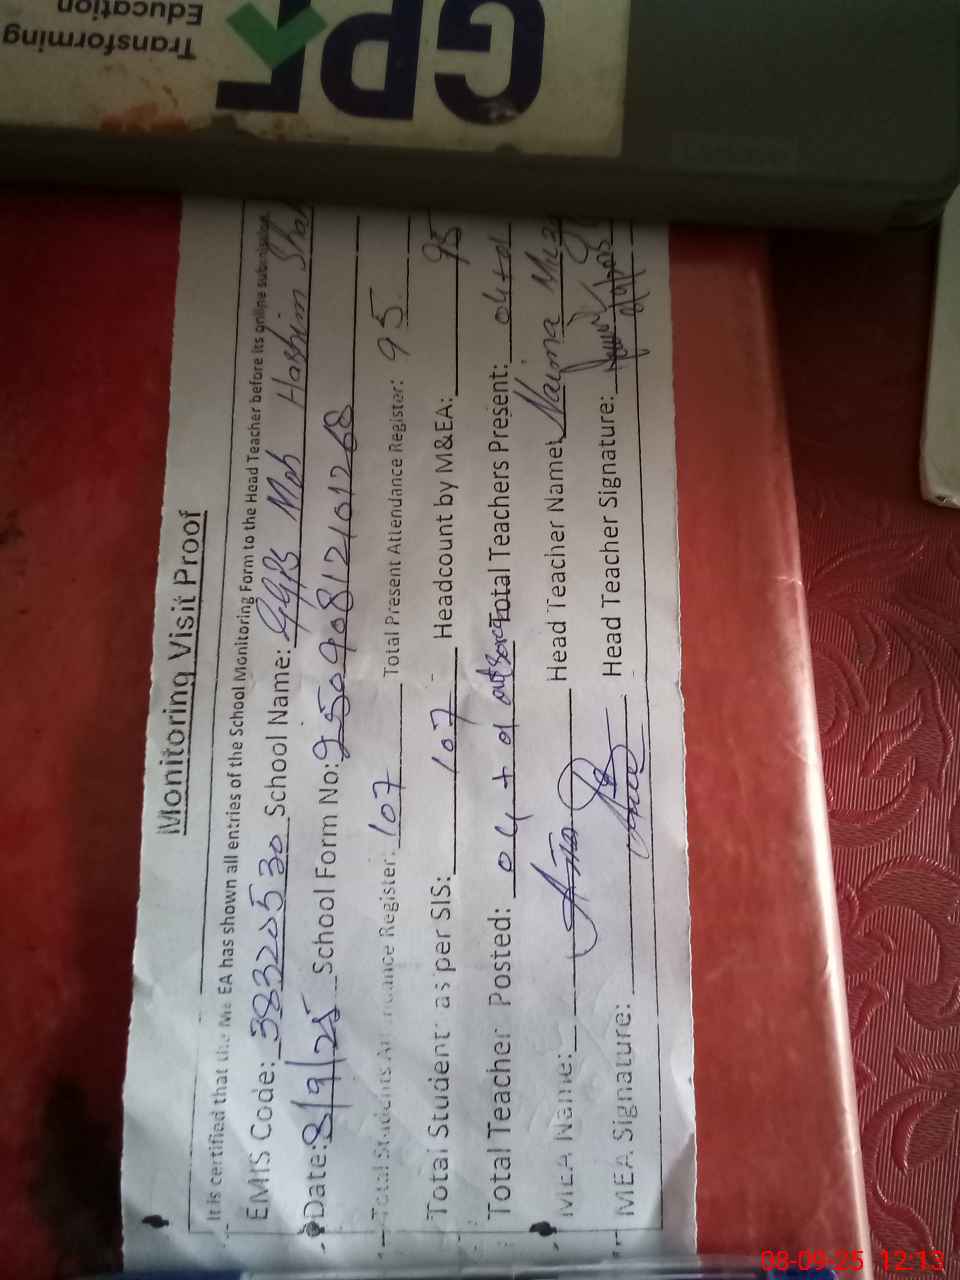 Transforming
Education
GPE
Monitoring Visit Proof
It is certified that the MEA has shown all entries of the School Monitoring Form to the Head Teacher before its online submission
EMIS Code: 38320530 School Name: GGPS Moh Hashim Shah
Date: 8/9/25 School Form No: 25090812101268
Total Students Attendance Register: 107 Total Present Attendance Register: 95
Total Student as per SIS: 107 Headcount by M&EA: 95
Total Teacher Posted: 04 + 01 Total Teachers Present: 04+01
MEA Name: Head Teacher Name: Naima
MEA Signature: Head Teacher Signature:
08-09-25 12:13